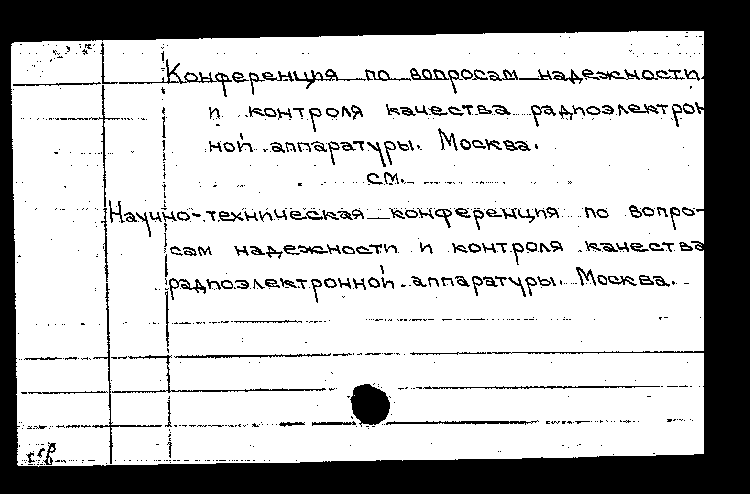 Конференция по вопросам надежности
и контроля качества радиоэлектрон
ной аппаратуры. Москва.
см.
Научно-техническая конференция по вопро-
сам надежности и контроля качества
радиоэлектронной аппаратуры. Москва.